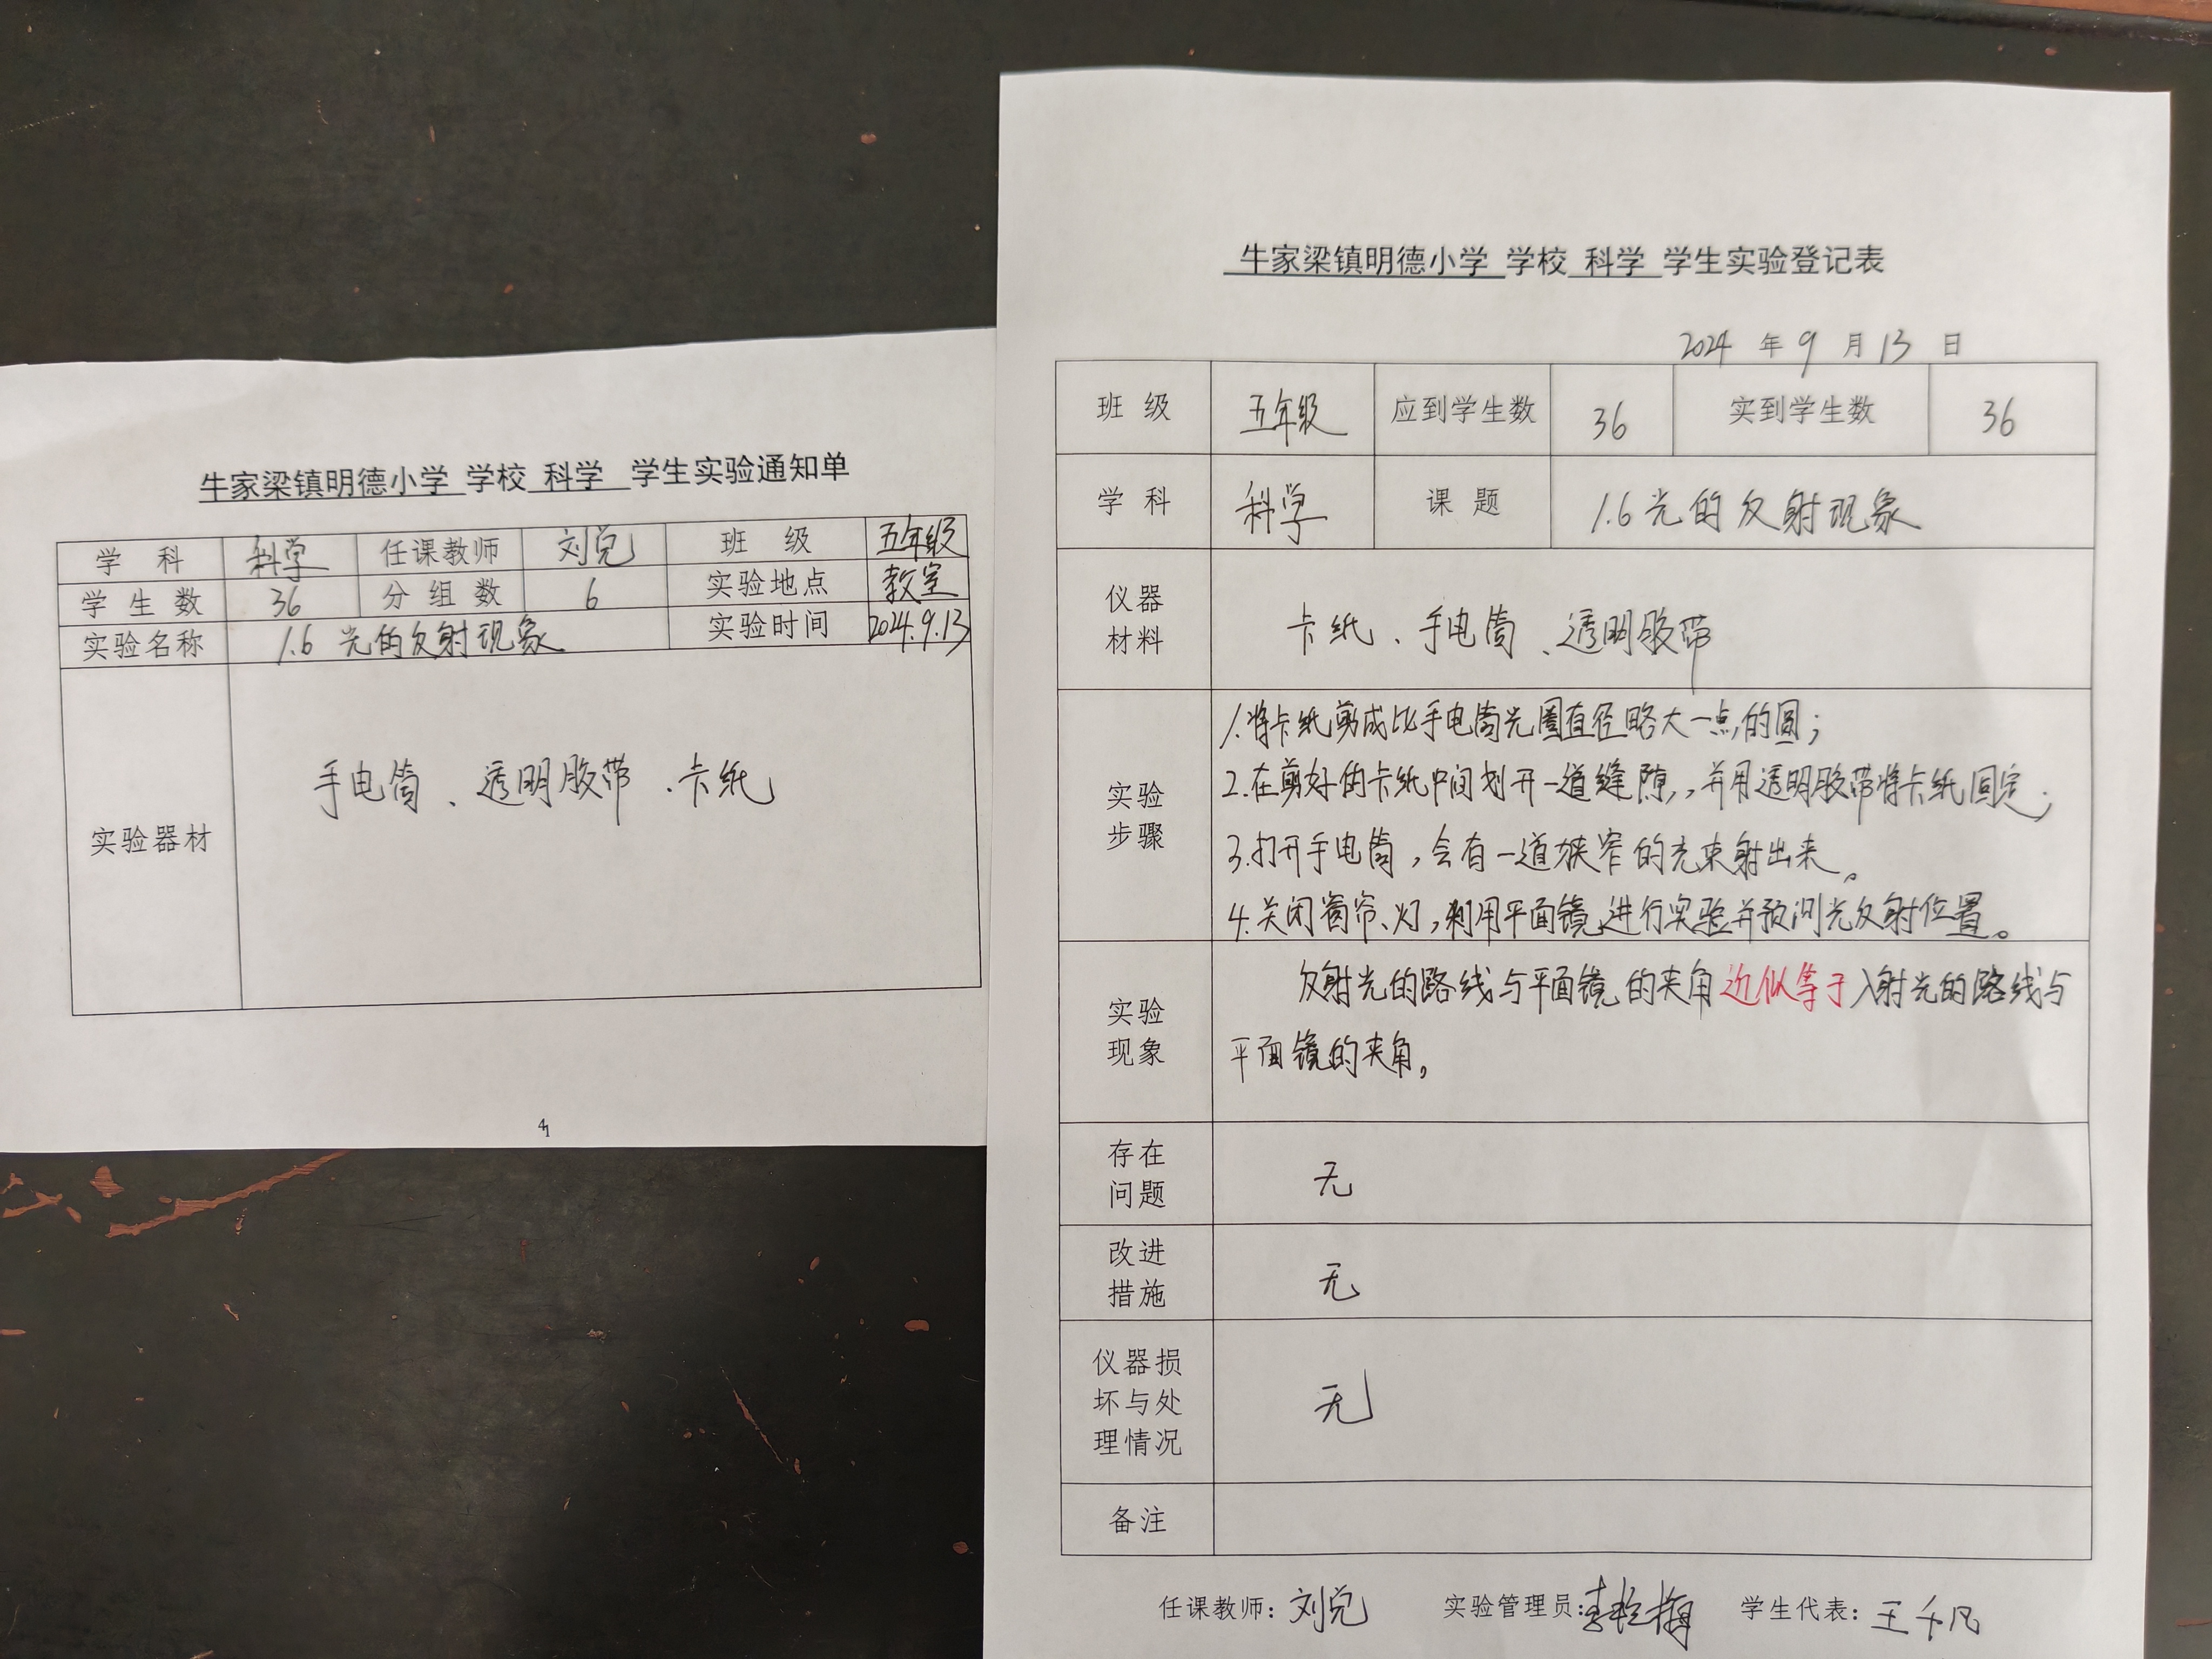 牛家梁镇明德小学 学校 科学 学生实验通知单
学 科 科学 任课教师 刘兑 班 级 五年级
学 生 数 36 分 组 数 6 实验地点 教室
实验名称 1.6 光的反射现象 实验时间 2024.9.13
实验器材 手电筒、透明胶带、卡纸
牛家梁镇明德小学 学校 科学 学生实验登记表
2024 年 9 月 13 日
班 级 五年级 应到学生数 36 实到学生数 36
学 科 科学 课 题 1.6光的反射现象
仪器
材料
卡纸、手电筒、透明胶带
实验
步骤
1.将卡纸剪成比手电筒光圈直径略大一点的圆;
2.在剪好的卡纸中间划开一道缝隙,并用透明胶带将卡纸固定;
3.打开手电筒,会有一道狭窄的光束射出来。
4.关闭窗帘、灯,利用平面镜进行实验并预测光反射位置。
实验
现象
反射光的路线与平面镜的夹角近似等于入射光的路线与
平面镜的夹角。
存在
问题
无
改进
措施
无
仪器损
坏与处
理情况
无
备注
任课教师: 刘兑 实验管理员: 学生代表: 王千凡